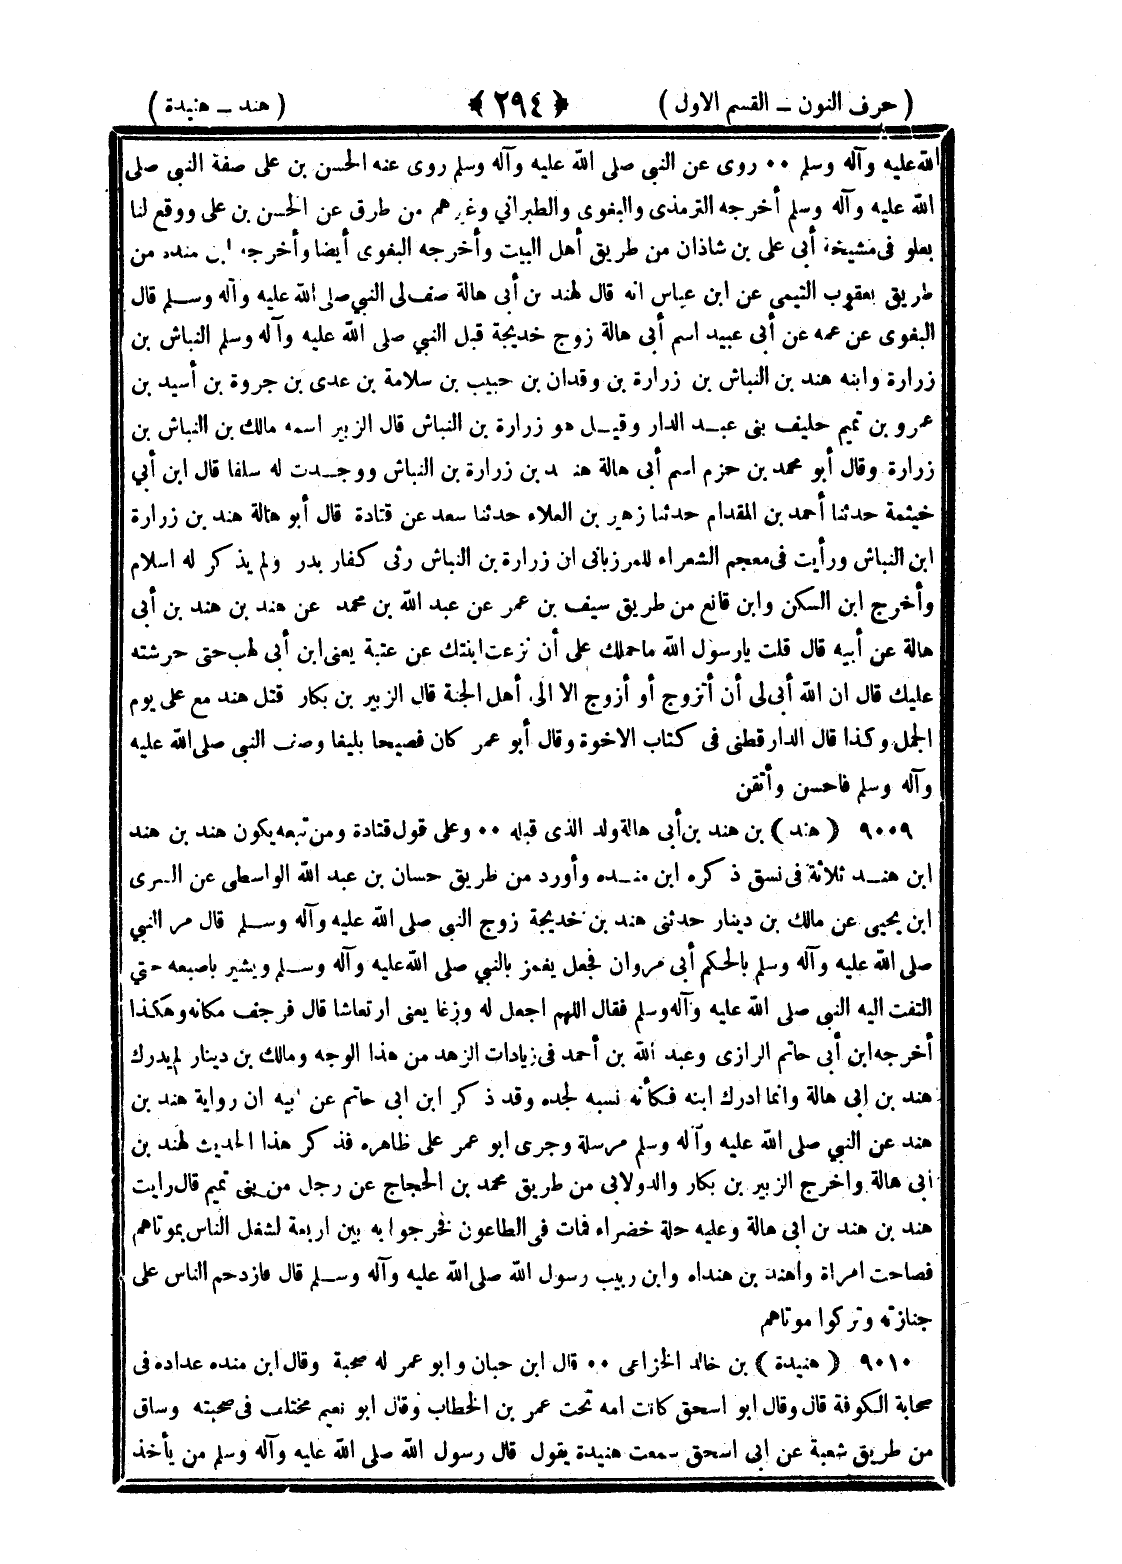 ( حرف النون ـ القسم الاول ) ﴿ ٢٩٤ ﴾ ( هند ـ هنيدة )
الله عليه وآله وسلم ٠٠ روى عن النبي صلى الله عليه وآله وسلم روى عنه الحسن بن على صفة النبي صلى
الله عليه وآله وسلم أخرجه الترمذى والبغوى والطبراني وغيرهم من طرق عن الحسن بن على ووقع لنا
بعلو فى مشيخة أبى على بن شاذان من طريق أهل البيت وأخرجه البغوى أيضا وأخرجه ابن منده من
طريق يعقوب التيمى عن ابن عباس انه قال لهند بن أبى هالة صف لى النبي صلى الله عليه وآله وسلم قال
البغوى عن عمه عن أبى عبيد اسم أبى هالة زوج خديجة قبل النبي صلى الله عليه وآله وسلم النباش بن
زرارة وابنه هند بن النباش بن زرارة بن وقدان بن حبيب بن سلامة بن عدى بن جروة بن أسيد بن
عمرو بن تميم حليف بنى عبد الدار وقيل هو زرارة بن النباش قال الزبير اسمه مالك بن النباش بن
زرارة وقال أبو محمد بن حزم اسم أبى هالة هند بن زرارة بن النباش ووجدت له سلفا قال ابن أبي
خيثمة حدثنا أحمد بن المقدام حدثنا زهير بن العلاء حدثنا سعد عن قتادة قال أبو هالة هند بن زرارة
ابن النباش ورأيت فى معجم الشعراء للمرزبانى ان زرارة بن النباش رثى كفار بدر ولم يذكر له اسلام
وأخرج ابن السكن وابن قانع من طريق سيف بن عمر عن عبد الله بن محمد عن هند بن هند بن أبى
هالة عن أبيه قال قلت يارسول الله ماحملك على أن نزعت ابنتك عن عتبة يعنى ابن أبى لهب حتى حرشته
عليك قال ان الله أبى لى أن أتزوج أو أزوج الا الى أهل الجنة قال الزبير بن بكار قتل هند مع على يوم
الجمل وكذا قال الدارقطنى فى كتاب الاخوة وقال أبو عمر كان فصيحا بليغا وصف النبى صلى الله عليه
وآله وسلم فاحسن وأتقن
٩٠٠٩ ( هند ) بن هند بن أبى هالة ولد الذى قبله ٠٠ وعلى قول قتادة ومن تبعه يكون هند بن هند
ابن هند ثلاثة فى نسق ذكره ابن منده وأورد من طريق حسان بن عبد الله الواسطى عن السرى
ابن يحيى عن مالك بن دينار حدثنى هند بن خديجة زوج النبى صلى الله عليه وآله وسلم قال مر النبي
صلى الله عليه وآله وسلم بالحكم أبى مروان فجعل يغمز بالنبي صلى الله عليه وآله وسلم ويشير باصبعه حتي
التفت اليه النبى صلى الله عليه وآله وسلم فقال اللهم اجعل له وزغا يعنى ارتعاشا قال فرجف مكانه وهكذا
أخرجه ابن أبى حاتم الرازى وعبد الله بن أحمد فى زيادات الزهد من هذا الوجه ومالك بن دينار لم يدرك
هند بن ابى هالة وانما ادرك ابنه فكأنه نسبه لجده وقد ذكر ابن ابى حاتم عن ابيه ان رواية هند بن
هند عن النبي صلى الله عليه وآله وسلم مرسلة وجرى ابو عمر على ظاهره فذكر هذا الحديث لهند بن
ابى هالة واخرج الزبير بن بكار والدولابى من طريق محمد بن الحجاج عن رجل من بنى تميم قال رايت
هند بن هند بن ابى هالة وعليه حلة خضراء فمات فى الطاعون فخرجوا به بين اربعة لشغل الناس بموتاهم
فصاحت امراة واهند بن هنداه وابن ربيب رسول الله صلى الله عليه وآله وسلم قال فازدحم الناس على
جنازته وتركوا موتاهم
٩٠١٠ ( هنيدة ) بن خالد الخزاعى ٠٠ قال ابن حبان وابو عمر له صحبة وقال ابن منده عداده فى
صحابة الكوفة قال وقال ابو اسحق كانت امه تحت عمر بن الخطاب وقال ابو نعيم مختلف فى صحبته وساق
من طريق شعبة عن ابى اسحق سمعت هنيدة يقول قال رسول الله صلى الله عليه وآله وسلم من يأخذ